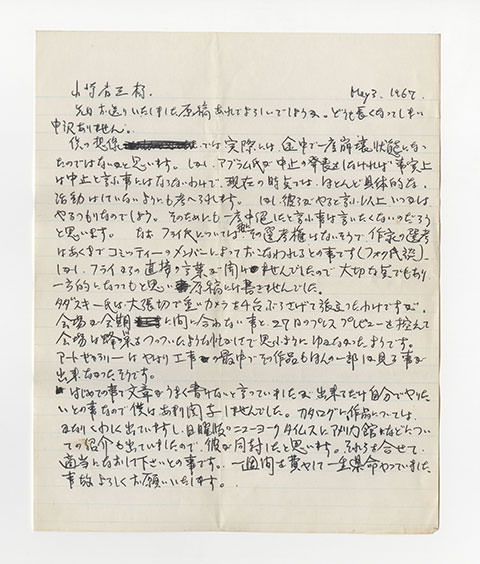 小崎吉三様. May 3. 1967.
先日お送りいたしました原稿あれでよろしいでしょうか。どうも長くなってしまい
申訳ありません。
僕の想像では実際には途中で一度崩壊状態になっ
たのではないかと思います。しかしアブラム氏が中止の発表をしなければ事実上
は中止と言う事にはならないわけで、現在の時点では、ほとんど具体的な、
活動はしていないようにも考へられます。しかし彼らがやると言う以上いつかは
やるつもりなのでしょう。そのためにも一度中絶したと言う事は言いたくないのだろう
と思います。なお フライ氏については その選考権はないそうで、作家の選考
はあくまでコミティーのメンバーによっておこなわれるとの事です(フォーク氏談)
しかし、フライ氏の直接の言葉が聞けませんでしたので大切な点でもあり
一方的になってもと思い原稿には書きませんでした。
タダスキー氏は大張切で重いカメラを4台ぶらさげて張立ったわけですが、
会場が会期に間に合わない事と、27日のプレスプレビューを控えて
会場は蜂の巣をつっついたようなわけで思うようにゆかなかったようです。
アートギャラリーはやはり工事の最中でその作品もほんの一部しか見る事が
出来なかったそうです。
はじめての事で文章がうまく書けないと言っていましたが出来るだけ自分でやりた
いとの事なので僕はあまり関与しませんでした。カタログに作品については、
かなりくわしく出ていますし、日曜版のニューヨークタイムスにアメリカ館などについ
ての紹介も出ていましたので、彼が同封したと思います。それらを合せて、
適当になおして下さいとの事です。一週間を費やして一生県命やっていました
事故よろしくお願いいたします。